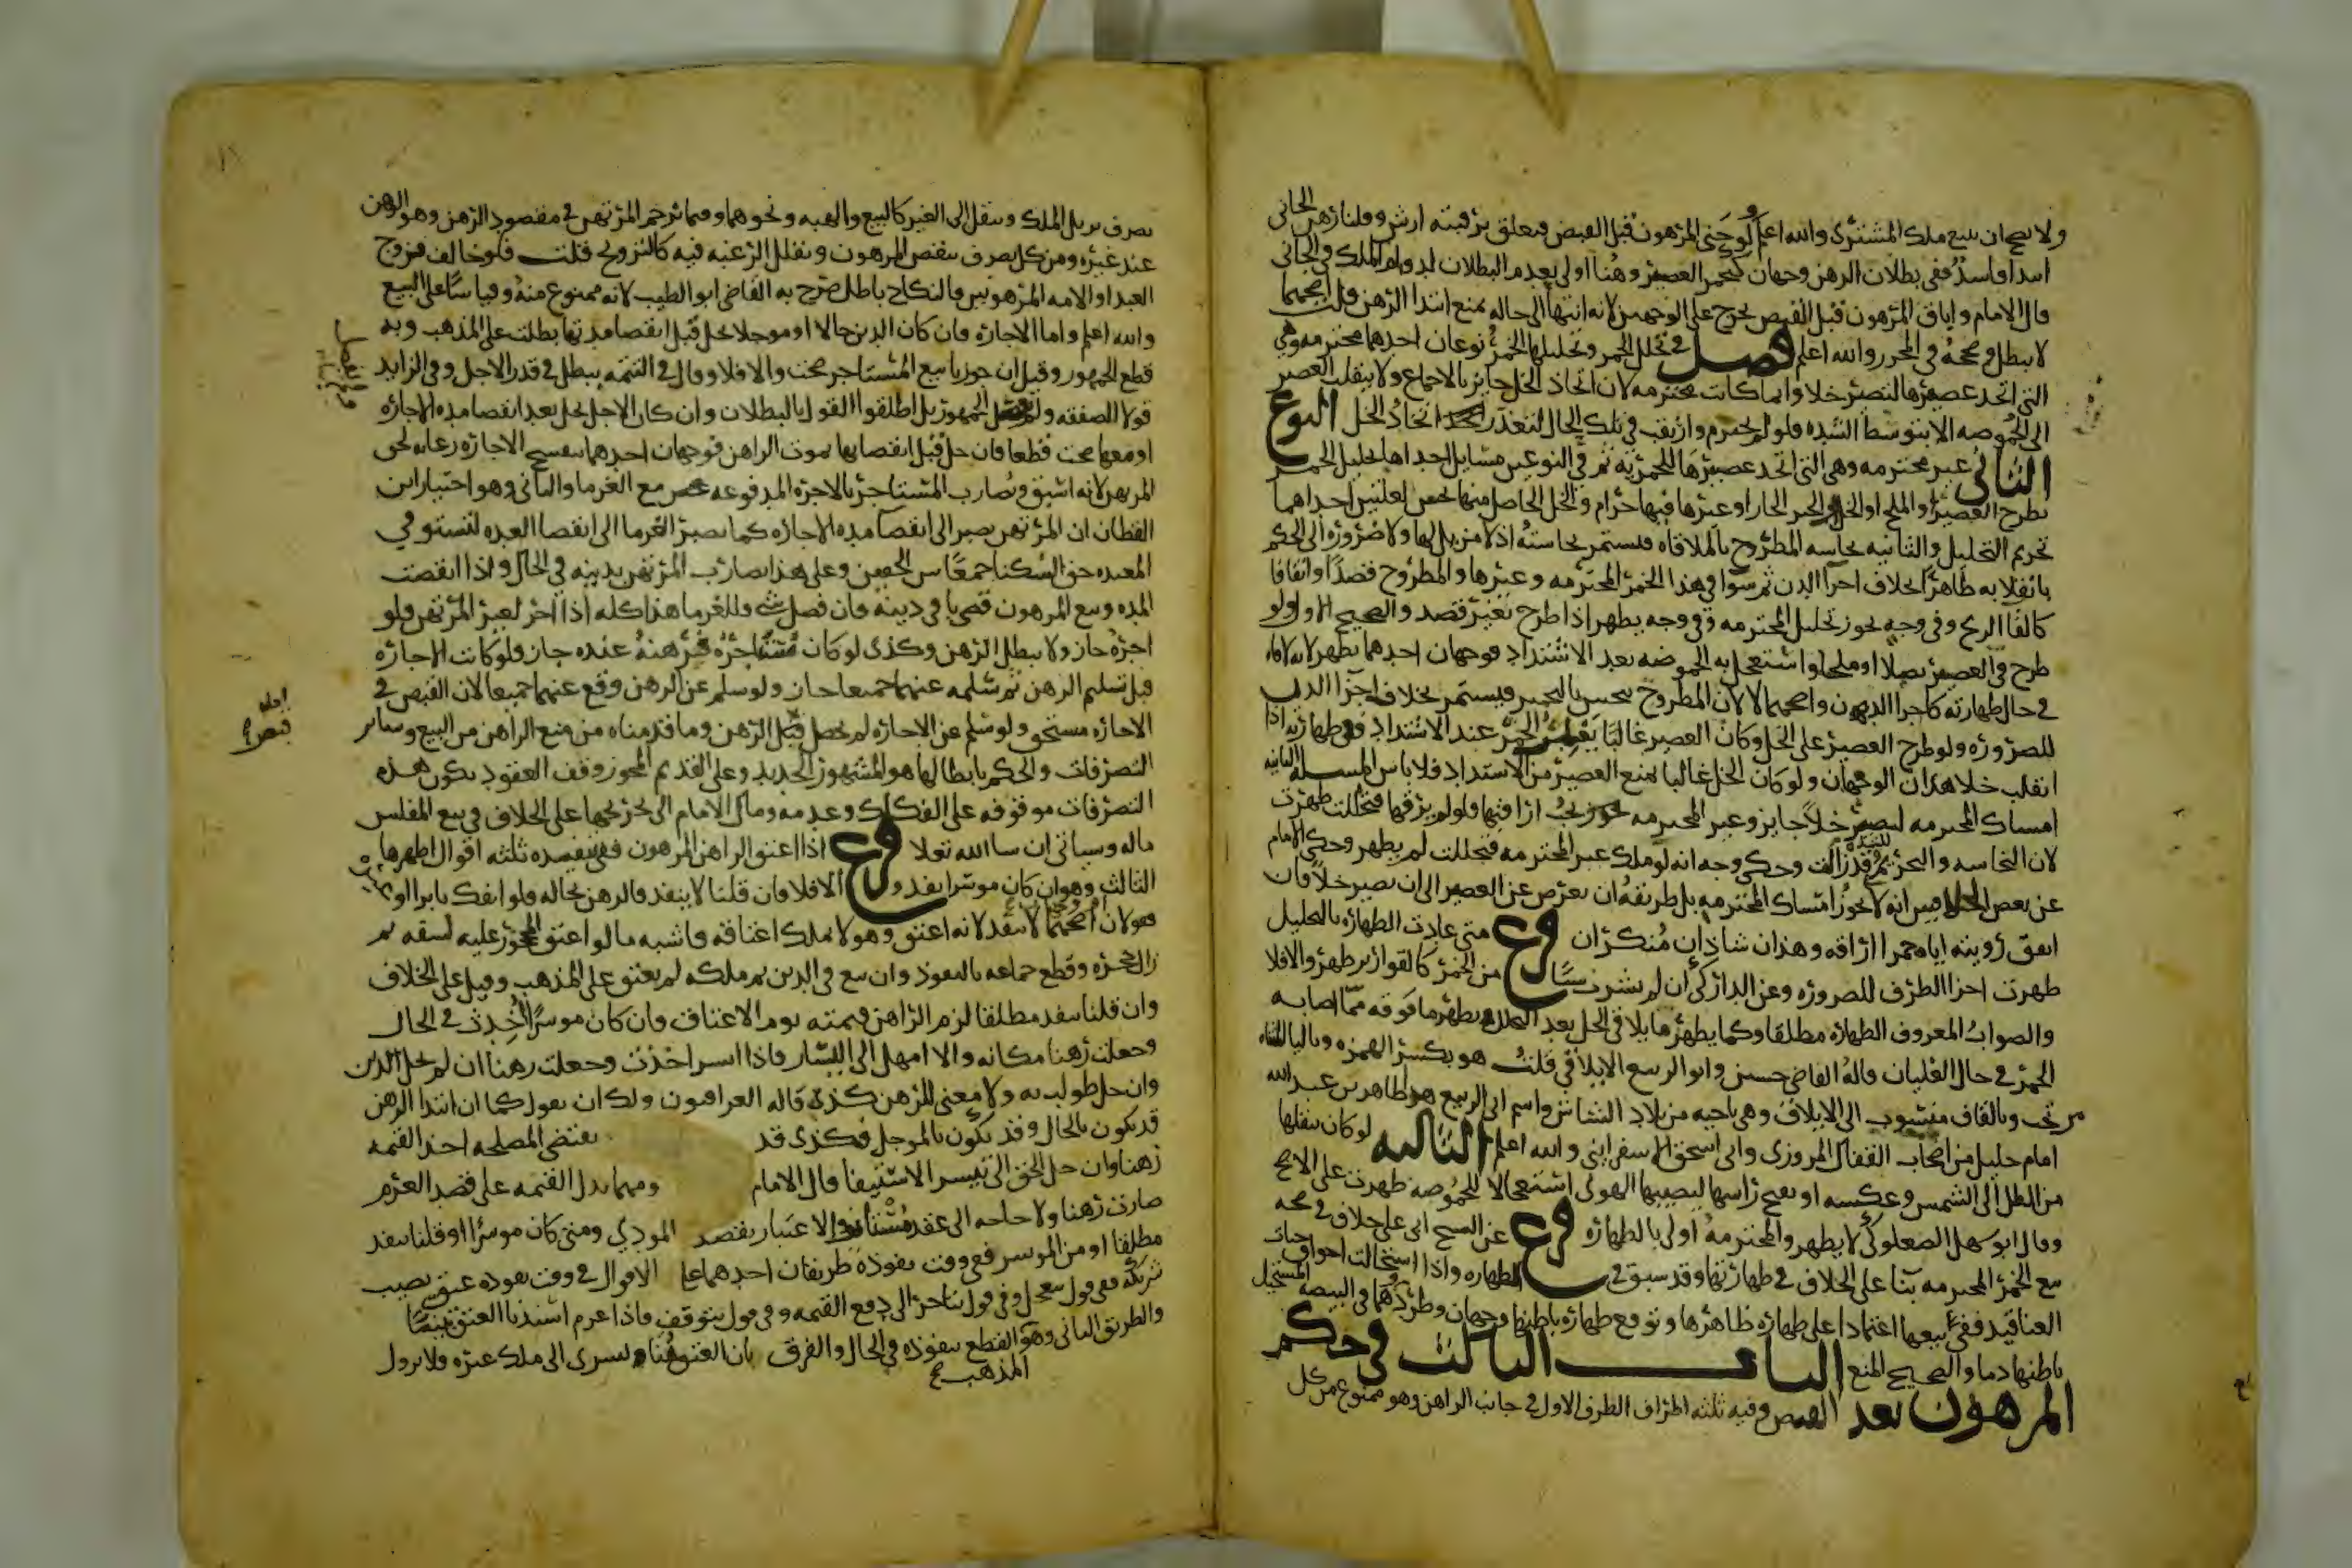 ولا يصح ان يبيع ملك المشترى والله اعلم ولو جنى المرهون قبل القبض فتعلق برقبته ارش وقلنا رهن الجانى
ابتدا فاسد ففى بطلان الرهن وجهان كتخمر العصير وهنا اولى بعدم البطلان لدوام الملك فى الجانى
قال الامام واباق المرهون قبل القبض يخرج على الوجهين لانه انتهى الى حاله تمنع ابتدا الرهن قلت اصحهما
لا يبطل وصححه فى المحرر والله اعلم فصل فى تخلل الخمر وتخليلها الخمر نوعان احدهما محترمه وهى
التى اتخذ عصيرها لتصير خلا وانما كانت محترمه لان اتخاذ الخل جايز بالاجماع ولا ينقلب العصير
الى الحموضه الا بتوسط الشده فلو لم تحترم واريقت فى تلك الحال لتعذر اتخاذ الخل النوع
الثانى غير محترمه وهى التى اتخذ عصيرها للخمريه ثم فى النوعين مسايل احداها تخليل الخمر
بطرح العصير او الملح او الخل او الخبز الحار او غيرها فيها حرام والخل الحاصل منها نجس لعلتين احداهما
تحريم التخليل والثانيه نجاسه المطروح بالملاقاه فتستمر نجاسته اذ لا مزيل لها ولا ضروره الى الحكم
بانقلابه طاهرا بخلاف اجزا الدن ثم سوا فى هذا الخمر المحترمه وغيرها والمطروح قصدا واتفاقا
كالقا الريح وفى وجه يجوز تخليل المحترمه وفى وجه يطهر اذا طرح بغير قصد والصحيح الاول ولو
طرح فى العصير بصلا او ملحا واستعجل به الحموضه بعد الاشتداد فوجهان احدهما يطهر لانه لاقاه
فى حال طهارته كاجزا الدن واصحهما لا لان المطروح ينجس بالتخمير فيستمر بخلاف اجزا الدن
للضروره ولو طرح العصير على الخل وكان العصير غالبا يغمر الخل عند الاشتداد ففى طهارته اذا
انقلب خلا هذان الوجهان ولو كان الخل غالبا يمنع العصير من الاشتداد فلا باس المسله الثانيه
امساك المحترمه لتصير خلا جايز وغير المحترمه يجب اراقتها فلو لم يرقها فتخللت طهرت
لان النجاسه والتحريم للشده وقد زالت وحكى وجه انه لو ملك غير المحترمه فتخللت لم يطهر وحكى الامام
عن بعض الخلافيين انه لا يجوز امساك المحترمه بل طريقه ان يعرض عن العصير الى ان يصير خلا فان
اتفق رؤيته اياه خمرا اراقه وهذان شاذان منكران فرع متى عادت الطهاره بالتخليل
طهرت اجزا الظرف للضروره وعن الداركى ان لم يشرب شيا من الخمر كالقوارير طهر والا فلا
والصواب المعروف الطهاره مطلقا وكما يطهر ما يلاقى الخل بعد التخلل يطهر ما فوقه مما اصابه
الخمر فى حال الغليان قاله القاضى حسين وابو الربيع الايلاقى قلت هو بكسر الهمزه وباليا المثناه
من تحت وبالقاف منسوب الى الايلاق وهى ناحيه من بلاد الشاش واسم ابى الربيع هو طاهر بن عبد الله
امام جليل من اصحاب القفال المروزى وابى اسحق الاسفراينى والله اعلم الثالثه لو كان ينقلها
من الظل الى الشمس وعكسه او يفتح راسها ليصيبها الهوى استعجالا للحموضه طهرت على الاصح
وقال ابو سهل الصعلوكى لا يطهر والمحترمه اولى بالطهاره فرع عن الشيخ ابى على خلاف فى صحه
بيع الخمر المحترمه بنا على الخلاف فى طهارتها وقد سبق فى الطهاره واذا استحالت اجواف حبات
العناقيد ففى بيعها اعتمادا على طهاره ظاهرها وتوقع طهاره باطنها وجهان وطردهما فى البيضه المستحيل
باطنها دما والصحيح المنع الباب الثالث فى حكم
المرهون بعد القبض وفيه ثلثه اطراف الطرف الاول فى جانب الراهن وهو ممنوع من كل
تصرف يزيل الملك وينقل الى الغير كالبيع والهبه ونحوهما ومما يزحم المرتهن فى مقصود الرهن وهو الرهن
عند غيره ومن كل تصرف ينقص المرهون ويقلل الرغبه فيه كالتزويج قلت فلو خالف فزوج
العبد او الامه المرهونين فالنكاح باطل صرح به القاضى ابو الطيب لانه ممنوع منه وقياسا على البيع
والله اعلم واما الاجاره فان كان الدين حالا او موجلا يحل قبل انقضا مدتها بطلت على المذهب وبه
قطع الجمهور وقيل ان جوزنا بيع المستاجر صحت والا فلا وقال فى التتمه يبطل فى قدر الاجل وفى الزايد
قولا الصفقه ولم يفصل الجمهور بل اطلقوا القول بالبطلان وان كان الاجل يحل بعد انقضا مده الاجاره
او معها صحت قطعا فان حل قبل انقضايها بموت الراهن فوجهان احدهما تنفسخ الاجاره رعايه لحق
المرتهن لانه اسبق ويضارب المستاجر بالاجره المدفوعه مع الغرما والثانى وهو اختيار ابن
القطان ان المرتهن يصبر الى انقضا مده الاجاره كما تصبر الغرما الى انقضا العده لتستوفى
المعتده حق السكنا جمعا بين الحقين وعلى هذا يضارب المرتهن بدينه فى الحال واذا انقضت
المده وبيع المرهون قضى باقى دينه فان فضل شى فللغرما هذا كله اذا اجر لغير المرتهن فلو
اجره جاز ولا يبطل الرهن وكذى لو كان مستاجره فرهنه عنده جاز فلو كانت الاجاره
قبل تسليم الرهن ثم سلمه عنهما جميعا جاز ولو سلم عن الرهن وقع عنهما جميعا لان القبض فى
الاجاره مستحق ولو سلم عن الاجاره لم يحصل قبض الرهن وما قدمناه من منع الراهن من البيع وساير
التصرفات والحكم بابطالها هو المشهور الجديد وعلى القديم المجوز وقف العقود يكون هذه
التصرفات موقوفه على الفكاك وعدمه ومال الامام الى تخريجها على الخلاف فى بيع المفلس
ماله وسياتى ان شا الله تعلا فرع اذا اعتق الراهن المرهون ففى تنفيذه ثلثه اقوال اظهرها
الثالث وهو ان كان موسرا نفذ والا فلا فان قلنا لا ينفذ فالرهن بحاله فلو انفك بابرا او غيره
فقولان اصحهما لا ينفذ لانه اعتق وهو لا يملك اعتاقه فاشبه ما لو اعتق المحجور عليه لسفه ثم
زال حجره وقطع جماعه بالنفوذ وان بيع فى الدين ثم ملكه لم يعتق على المذهب وقيل على الخلاف
وان قلنا ينفذ مطلقا لزم الراهن قيمته يوم الاعتاق وان كان موسرا اخذت فى الحال
وجعلت رهنا مكانه والا امهل الى اليسار فاذا ايسر اخذت وجعلت رهنا ان لم يحل الدين
وان حل طولب به ولا معنى للرهن كذى قاله العراقيون ولك ان تقول كما ان ابتدا الرهن
قد يكون بالحال وقد يكون بالموجل فكذى قد يقتضى المصلحه اخذ القيمه
رهنا وان حل الحق الى تيسر الاستيفا قال الامام ومهما بذل القيمه على قصد الغرم
صارت رهنا ولا حاجه الى عقد مستانف والاعتبار بقصد المودي ومتى كان موسرا وقلنا ينفذ
مطلقا او من الموسر ففى وقت نفوذه طريقان احدهما على الاقوال فى وقت نفوذه عتق نصيب
شريكه ففى قول يتعجل وفى قول يتاخر الى دفع القيمه وفى قول يتوقف فاذا غرم اسندنا العتق
والطريق الثانى وهو المذهب القطع بنفوذه فى الحال والفرق بان العتق هنا يسرى الى ملك غيره فلا يزول